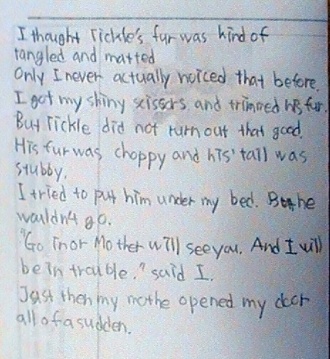 I thought Tickle's fur was kind of
tangled and matted
Only I never actually noticed that before.
I got my shiny scissors and trimmed his fur.
But Tickle did not turn out that good.
His fur was choppy and his' tail was
stubby.
I tried to put him under my bed. But he
wouldn't go.
"Go in or Mother will see you. And I will
be in trouble." said I.
Just then my mothe opened my door
all of a sudden.